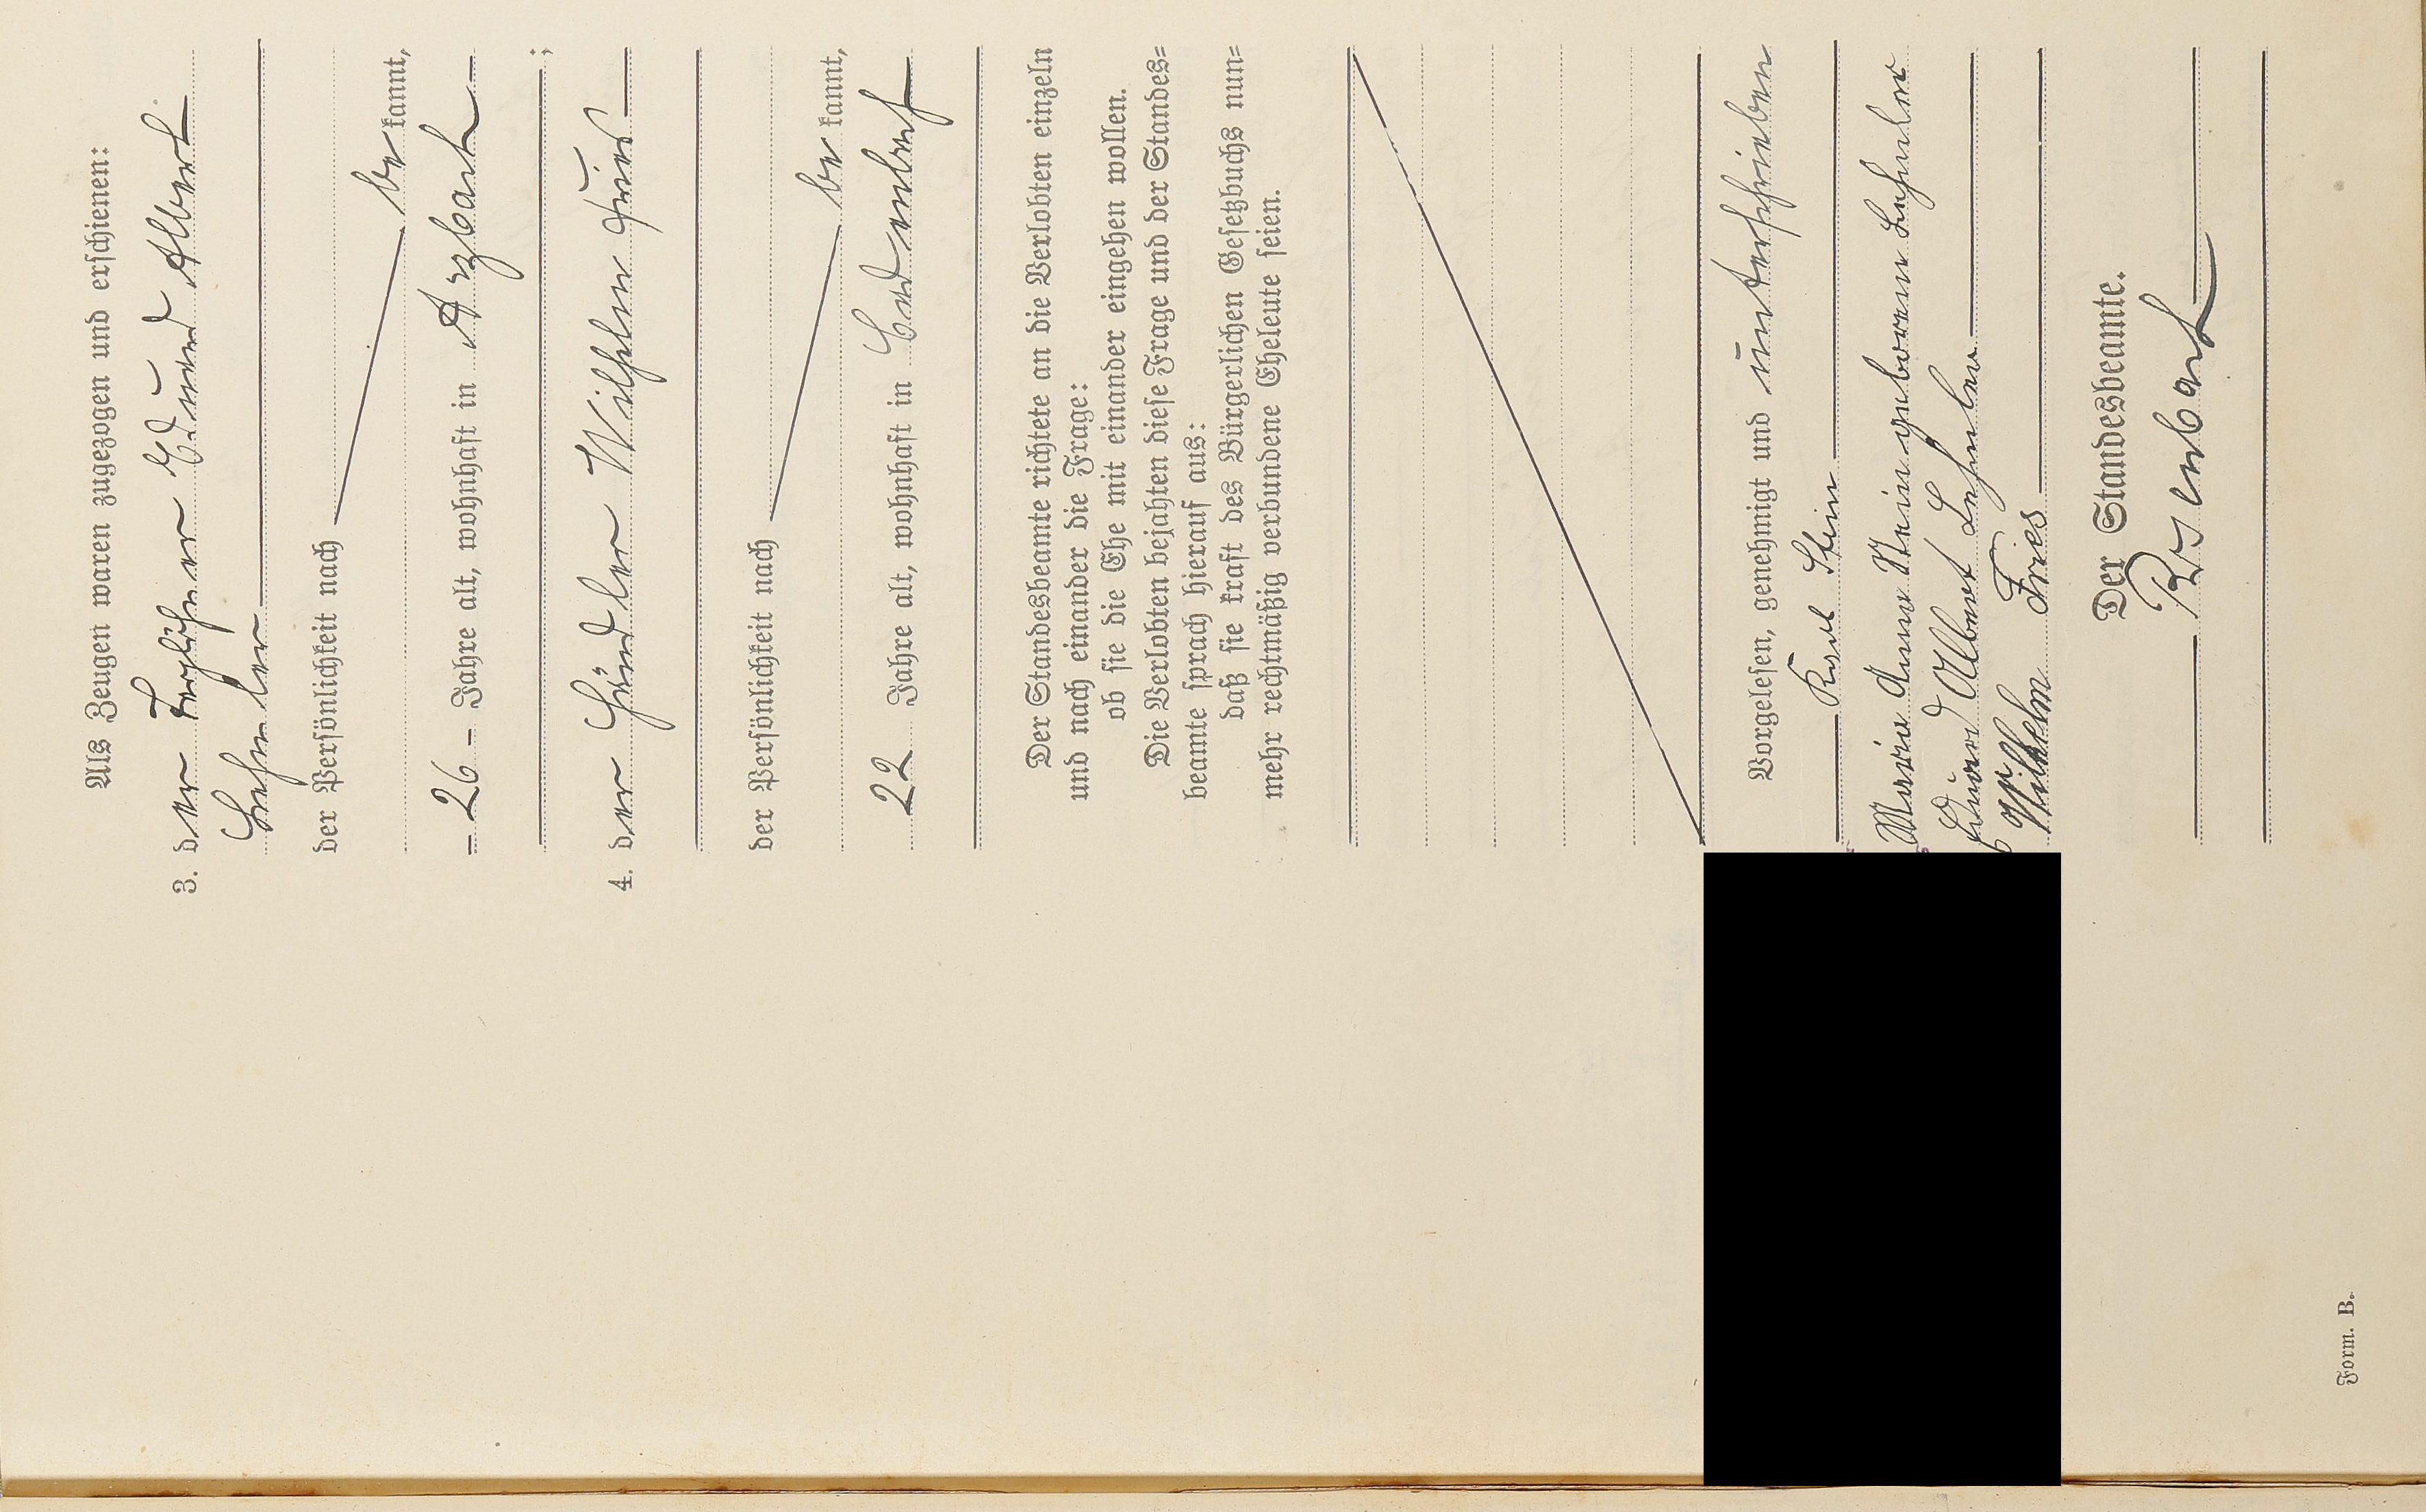 Als Zeugen waren zugezogen und erschienen:
3. der Tagelöhner Eduard Albert
Lehmler
der Persönlichkeit nach
be kannt,
26 Jahre alt, wohnhaft in Arzbach
;
4. der Händler Wilhelm Fries
der Persönlichkeit nach
be kannt,
22 Jahre alt, wohnhaft in Cadenbach
Der Standesbeamte richtete an die Verlobten einzeln
und nach einander die Frage:
ob sie die Ehe mit einander eingehen wollen.
Die Verlobten bejahten diese Frage und der Standes=
beamte sprach hierauf aus:
daß sie kraft des Bürgerlichen Gesetzbuchs nun=
mehr rechtmäßig verbundene Eheleute seien.
Vorgelesen, genehmigt und unterschrieben
Karl Stein
Maria Anna Stein geborene Lehmler
Eduard Albert Lehmler
Wilhelm Fries
Der Standesbeamte.
Form. B.